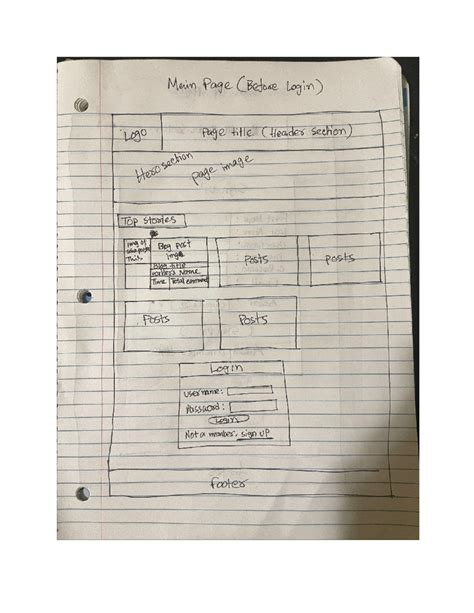 Main Page (Before Login)
Logo
Page title (Header section)
Hero section
page image
Top stories
img of
This
Blog Post
img
Blog title
Name
Time Total comment
Posts
Posts
Posts
Posts
Login
username:
Password:
Login
Not a member, sign up
footer